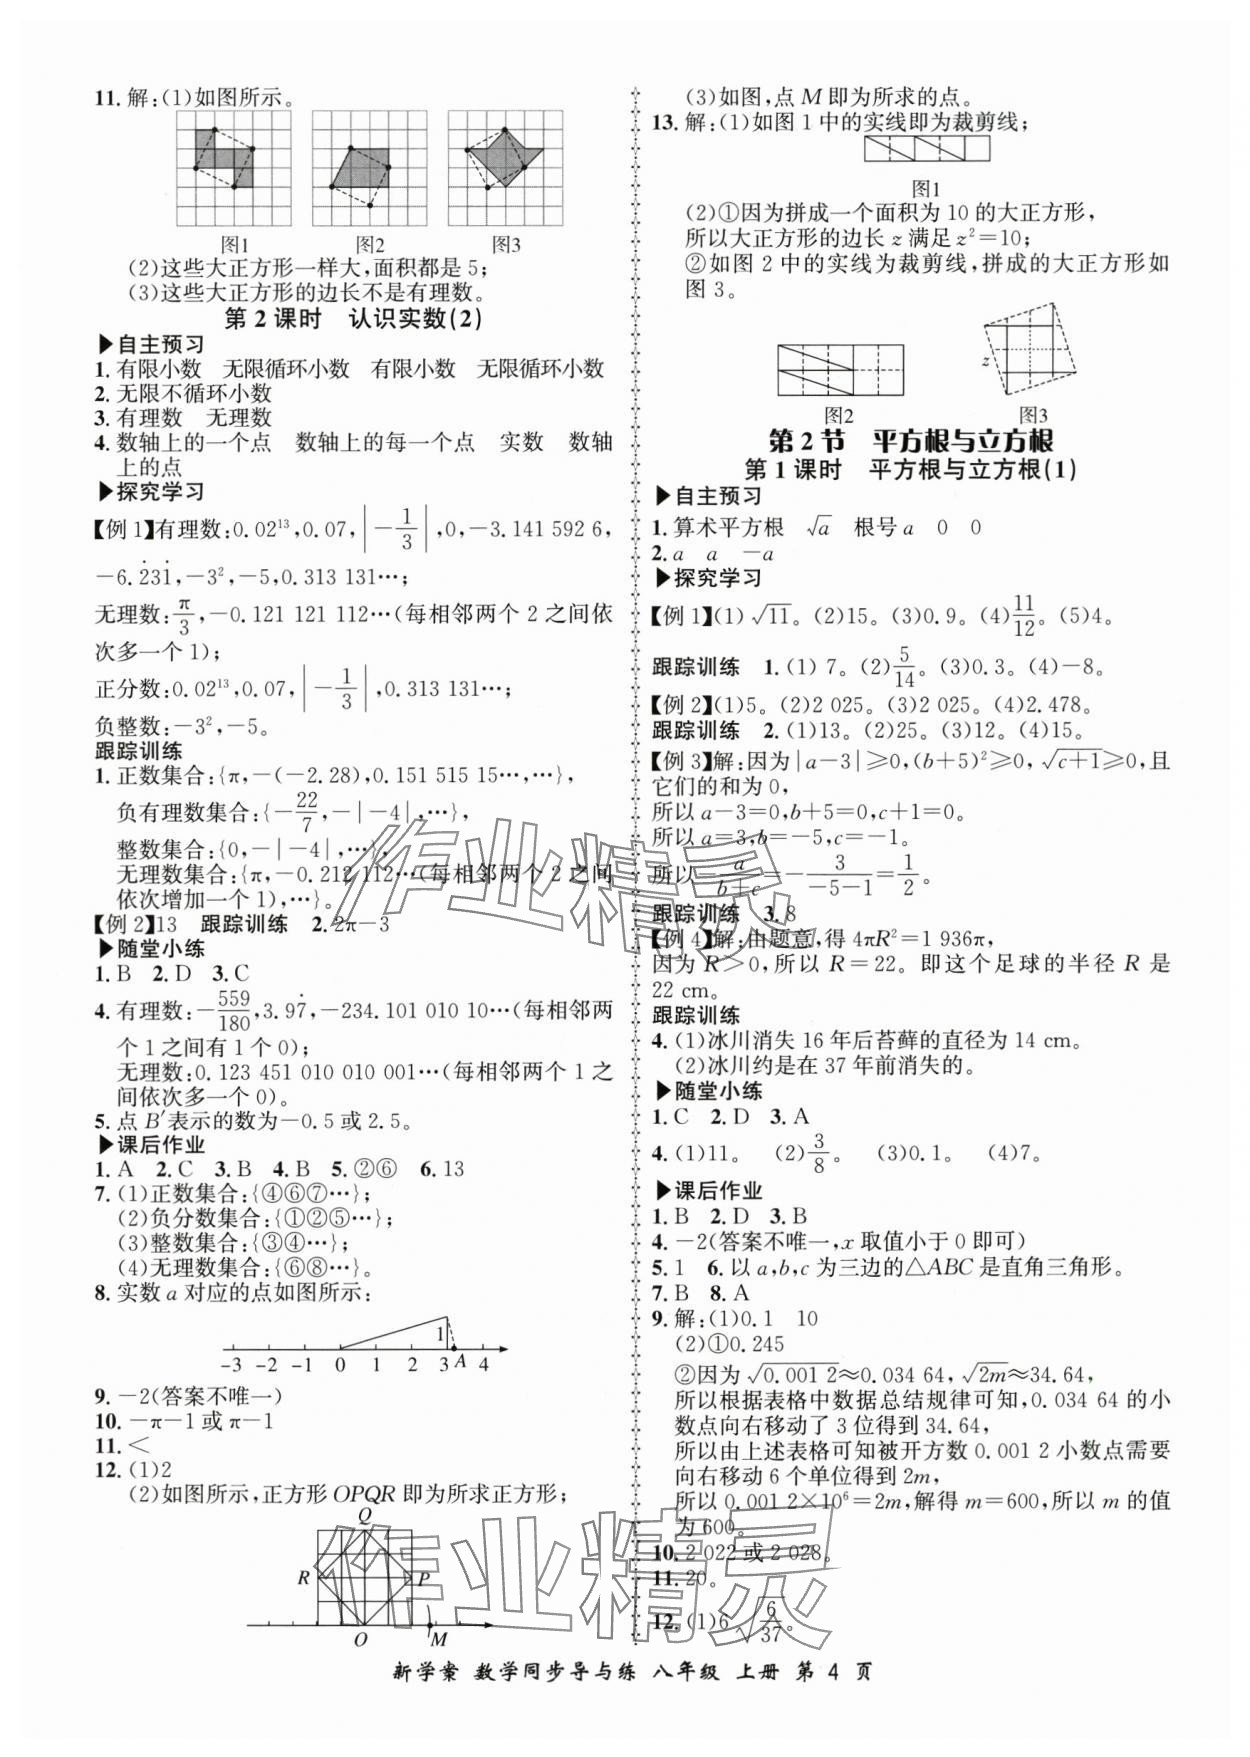 11. 解:(1)如图所示。
图1 图2 图3
(2)这些大正方形一样大,面积都是 5;
(3)这些大正方形的边长不是有理数。
第 2 课时 认识实数(2)
▶自主预习
1. 有限小数 无限循环小数 有限小数 无限循环小数
2. 无限不循环小数
3. 有理数 无理数
4. 数轴上的一个点 数轴上的每一个点 实数 数轴
上的点
▶探究学习
【例 1】有理数:0.02¹³,0.07,|−1/3|,0,−3.141 592 6,
−6.2̇31̇,−3²,−5,0.313 131…;
无理数:π/3,−0.121 121 112…(每相邻两个 2 之间依
次多一个 1);
正分数:0.02¹³,0.07,|−1/3|,0.313 131…;
负整数:−3²,−5。
跟踪训练
1. 正数集合:{π,−(−2.28),0.151 515 15…,…},
负有理数集合:{−22/7,−|−4|,…},
整数集合:{0,−|−4|,…},
无理数集合:{π,−0.212 112…(每相邻两个 2 之间
依次增加一个 1),…}。
【例 2】13 跟踪训练 2. 2π−3
▶随堂小练
1. B 2. D 3. C
4. 有理数:−559/180,3.97̇,−234.101 010 10…(每相邻两
个 1 之间有 1 个 0);
无理数:0.123 451 010 010 001…(每相邻两个 1 之
间依次多一个 0)。
5. 点 B′表示的数为−0.5 或 2.5。
▶课后作业
1. A 2. C 3. B 4. B 5. ②⑥ 6. 13
7. (1)正数集合:{④⑥⑦…};
(2)负分数集合:{①②⑤…};
(3)整数集合:{③④…};
(4)无理数集合:{⑥⑧…}。
8. 实数 a 对应的点如图所示:
1
-3 -2 -1 0 1 2 3 A 4
9. −2(答案不唯一)
10. −π−1 或 π−1
11. <
12. (1)2
(2)如图所示,正方形 OPQR 即为所求正方形;
Q
R P
O M
(3)如图,点 M 即为所求的点。
13. 解:(1)如图 1 中的实线即为裁剪线;
图1
(2)①因为拼成一个面积为 10 的大正方形,
所以大正方形的边长 z 满足 z²=10;
②如图 2 中的实线为裁剪线,拼成的大正方形如
图 3。
z
图2 图3
第 2 节 平方根与立方根
第 1 课时 平方根与立方根(1)
▶自主预习
1. 算术平方根 √a 根号 a 0 0
2. a a −a
▶探究学习
【例 1】(1) √11。(2)15。(3)0.9。(4)11/12。(5)4。
跟踪训练 1. (1) 7。(2)5/14。(3)0.3。(4)−8。
【例 2】(1)5。(2)2 025。(3)2 025。(4)2.478。
跟踪训练 2. (1)13。(2)25。(3)12。(4)15。
【例 3】解:因为|a−3|≥0,(b+5)²≥0,√(c+1)≥0,且
它们的和为 0,
所以 a−3=0,b+5=0,c+1=0。
所以 a=3,b=−5,c=−1。
所以−a/(b+c)=−3/(−5−1)=1/2。
跟踪训练 3. 8
【例 4】解:由题意,得 4πR²=1 936π,
因为 R>0,所以 R=22。即这个足球的半径 R 是
22 cm。
跟踪训练
4. (1)冰川消失 16 年后苔藓的直径为 14 cm。
(2)冰川约是在 37 年前消失的。
▶随堂小练
1. C 2. D 3. A
4. (1)11。 (2)3/8。 (3)0.1。 (4)7。
▶课后作业
1. B 2. D 3. B
4. −2(答案不唯一,x 取值小于 0 即可)
5. 1 6. 以 a,b,c 为三边的△ABC 是直角三角形。
7. B 8. A
9. 解:(1)0.1 10
(2)①0.245
②因为 √0.001 2≈0.034 64,√2m≈34.64,
所以根据表格中数据总结规律可知,0.034 64 的小
数点向右移动了 3 位得到 34.64,
所以由上述表格可知被开方数 0.001 2 小数点需要
向右移动 6 个单位得到 2m,
所以 0.001 2×10⁶=2m,解得 m=600,所以 m 的值
为 600。
10. 2 022 或 2 028。
11. 20。
12. (1)6√(6/37)。
新学案 数学同步导与练 八年级 上册 第 4 页
作业精灵
作业精灵